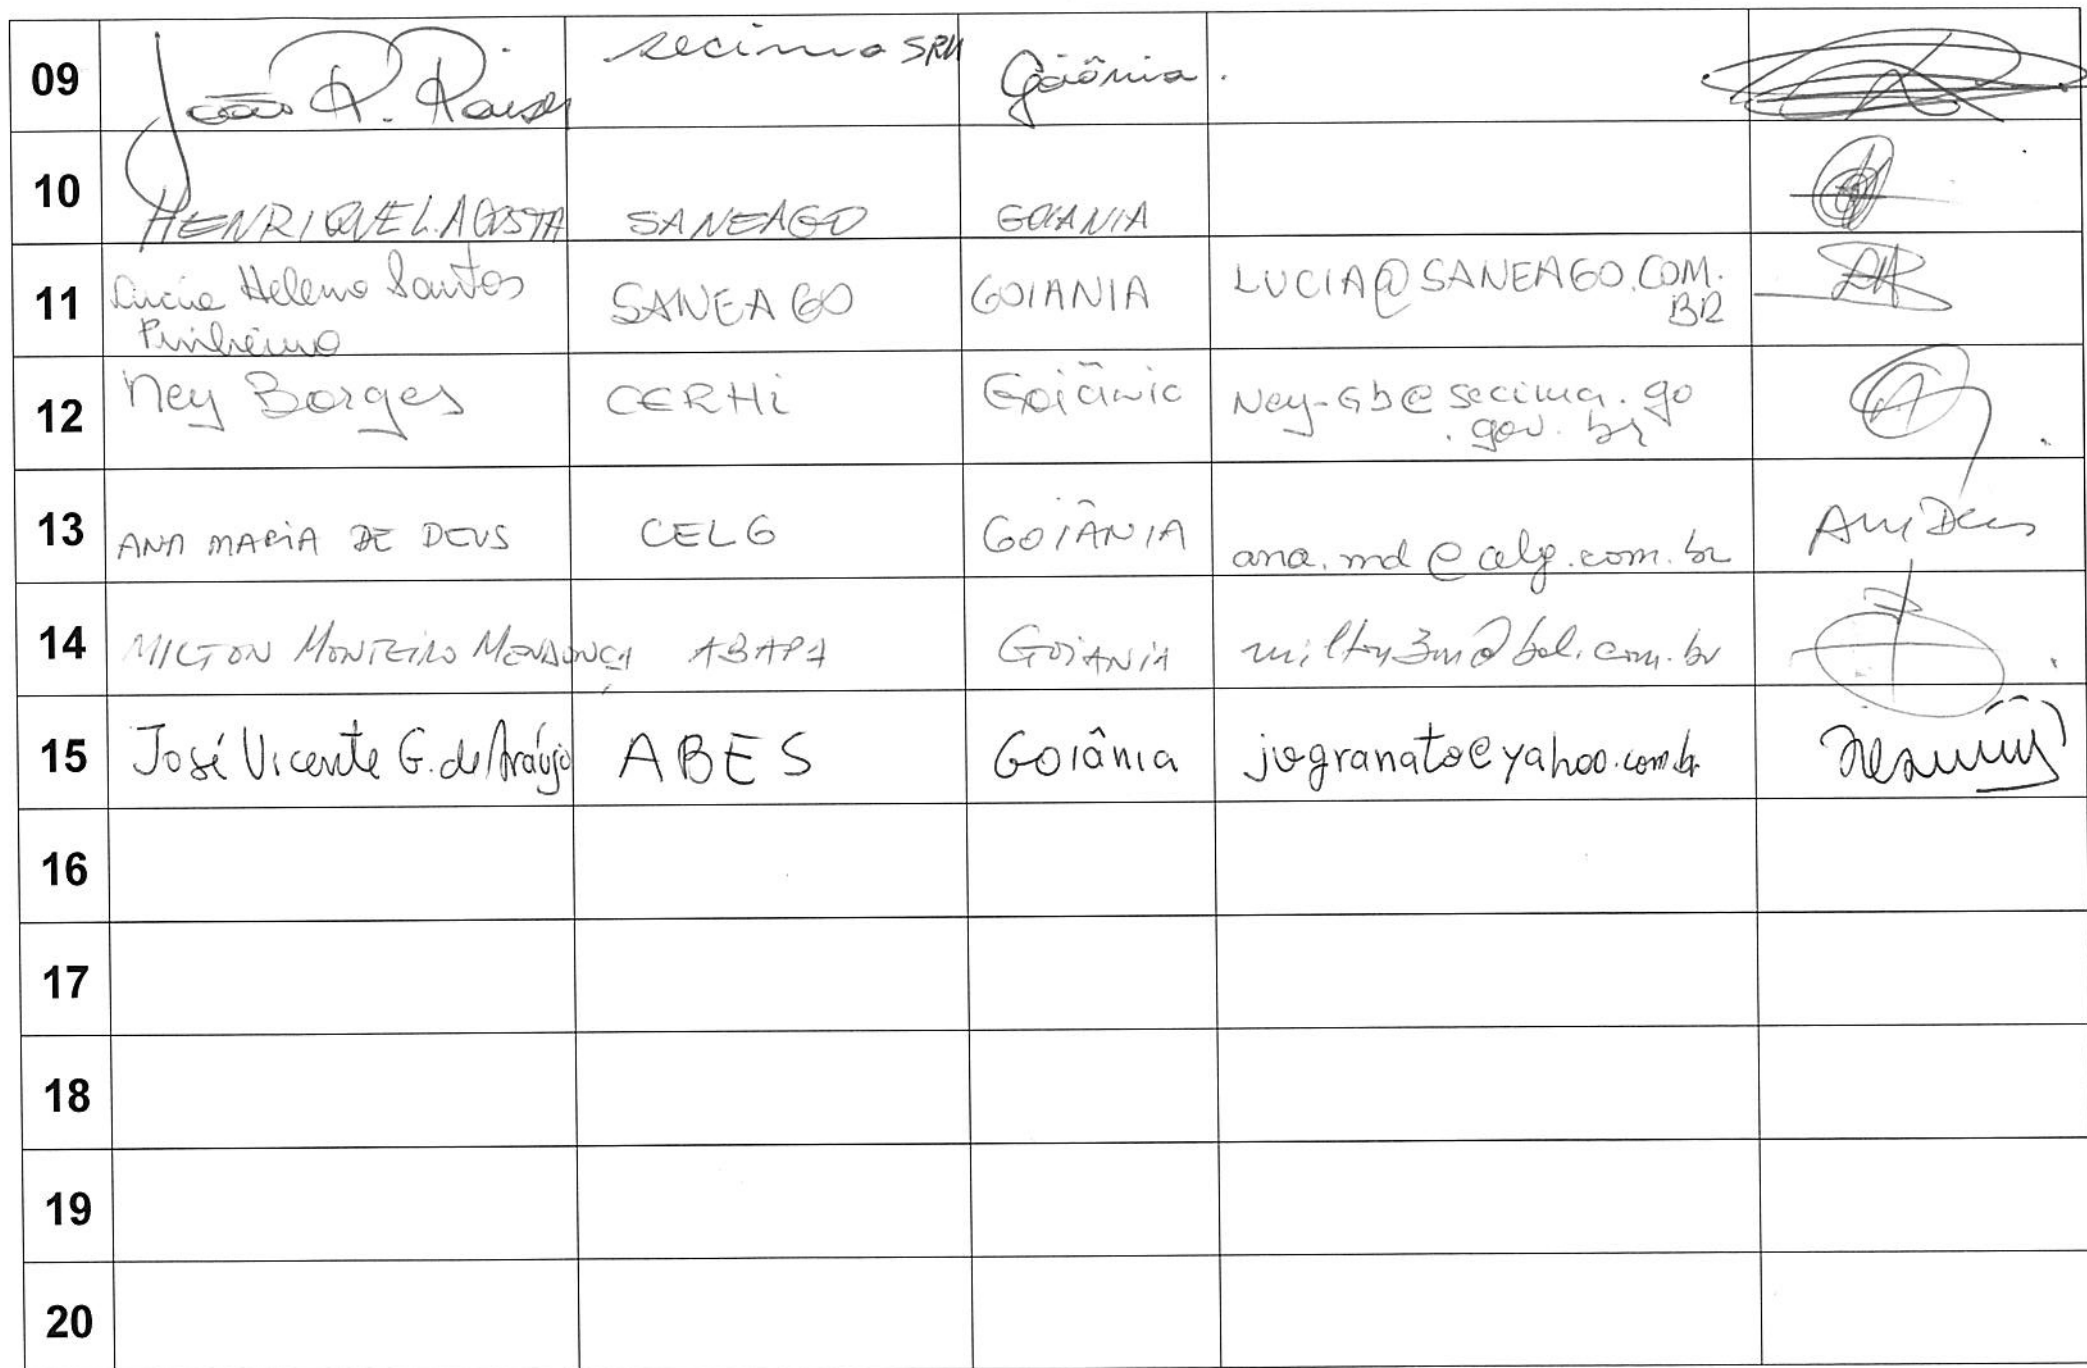 09 João R. Raiser secima SRH Goiânia.
10 HENRIQUE L. A COSTA SANEAGO GOIANIA
11 Lucia Helena Santos Pinheiro SANEAGO GOIANIA LUCIA@SANEAGO.COM.BR
12 Ney Borges CERHi Goiânia Ney-Gb@secima.go.gov.br
13 ANA MARIA DE DEUS CELG GOIÂNIA ana.md@celg.com.br
14 MILTON MONTEIRO MENDONÇA ABAPA GOIANIA milton3m@bol.com.br
15 José Vicente G. de Araújo ABES Goiânia jvgranato@yahoo.com.br
16
17
18
19
20